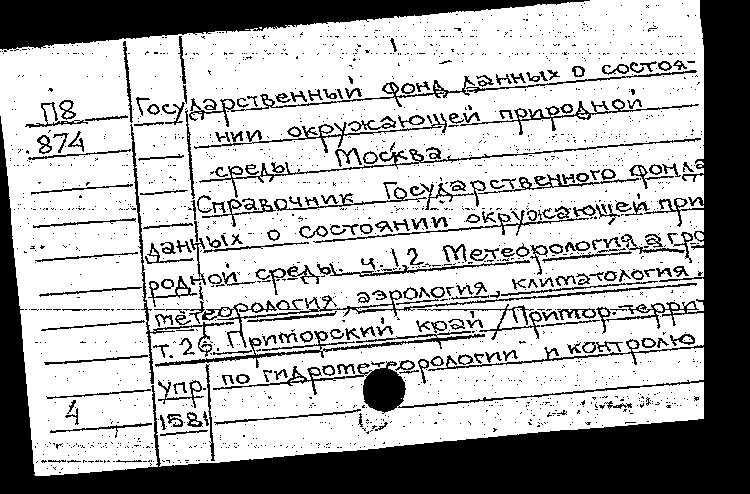 1
П8 Государственный фонд данных о состоя-
874 нии окружающей природной
среды. Москва.
Справочник Государственного фонда
данных о состоянии окружающей при
родной среды. ч. 1,2 Метеорология, агро
метеорология, аэрология, климатология.
т. 26. Приморский край / Примор. террит
упр. по гидрометеорологии и контролю
4 1581